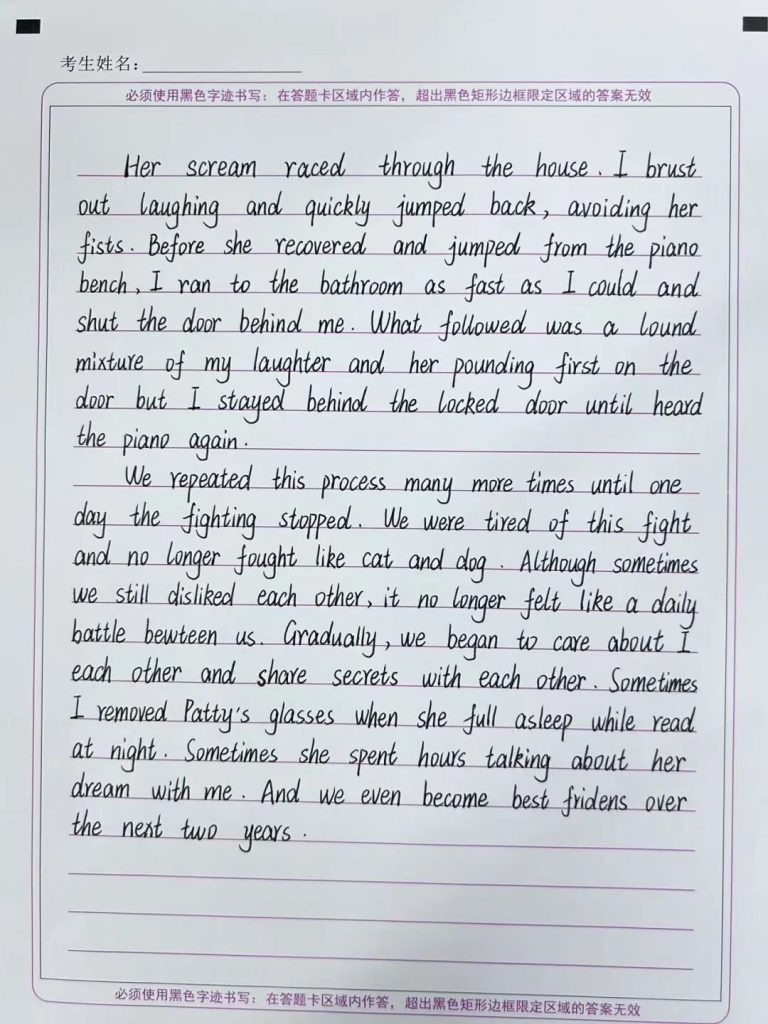 考生姓名:
必须使用黑色字迹书写：在答题卡区域内作答，超出黑色矩形边框限定区域的答案无效
Her scream raced through the house. I brust
out laughing and quickly jumped back, avoiding her
fists. Before she recovered and jumped from the piano
bench, I ran to the bathroom as fast as I could and
shut the door behind me. What followed was a lound
mixture of my laughter and her pounding first on the
door but I stayed behind the locked door until heard
the piano again.
We repeated this process many more times until one
day the fighting stopped. We were tired of this fight
and no longer fought like cat and dog. Although sometimes
we still disliked each other, it no longer felt like a daily
battle bewteen us. Gradually, we began to care about I
each other and share secrets with each other. Sometimes
I removed Patty's glasses when she full asleep while read
at night. Sometimes she spent hours talking about her
dream with me. And we even become best fridens over
the next two years.
必须使用黑色字迹书写：在答题卡区域内作答，超出黑色矩形边框限定区域的答案无效